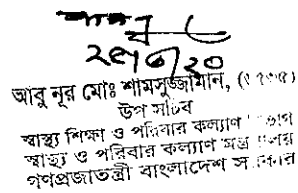 ২৯/৩/২০
আবু নূর মোঃ শামসুজ্জামান,
উপ সচিব
স্বাস্থ্য শিক্ষা ও পরিবার কল্যাণ
স্বাস্থ্য ও পরিবার কল্যাণ
গণপ্রজাতন্ত্রী বাংলাদেশ সরকার